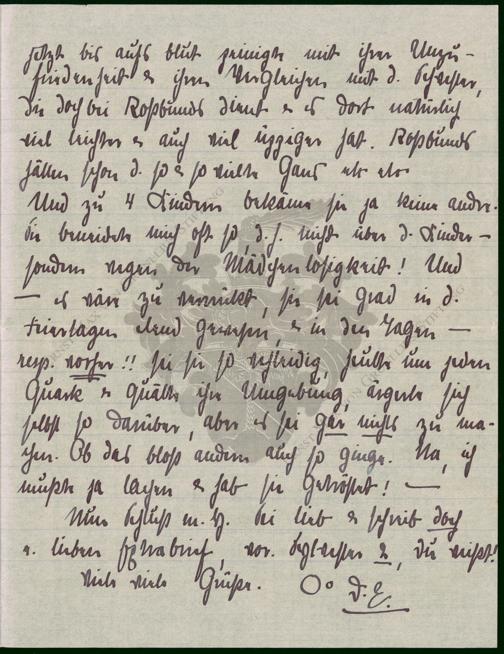 jetzt bis aufs blut peinigte mit ihrer Unzu-
friedenheit & ihren Vergleichen mit d. Schwester,
die doch bei Roßbunds dient & es dort natürlich
viel leichter & auch viel üppiger hat. Roßbunds
hätten schon d. so & so vielte Gans etc etc
Und zu 4 Kindern bekäme sie ja keine andre.
Sie beneidete mich oft so, d. h. nicht über d. Kinder –
sondern wegen der Mädchenlosigkeit! Und
– es wäre zu verrückt, sie sei grad in d.
Feiertagen elend gewesen, & in den Tagen –
resp. vorher!! sei sie so, heulte um jeden
Quark & quälte ihre Umgebung, ärgerte sich
selbst so darüber, aber es sei gar nichts zu ma-
chen. Ob das bloss andern auch so ginge. Na, ich
mußte ja lachen & hab sie getröstet! –
Nun Schluß m. H. Sei lieb & schreib doch
e. lieben, vor. Sylvester &, du weißt!
Viele viele Grüße. O o D. E.